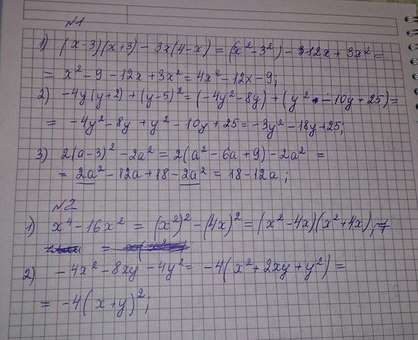 №1
1) (x-3)(x+3)-3x(4-x)=(x²-3²)-12x+3x²=
= x²-9-12x+3x²=4x²-12x-9;
2) -4y(y+2)+(y-5)²=(-4y²-8y)+(y²-10y+25)=
= -4y²-8y+y²-10y+25=-3y²-18y+25;
3) 2(a-3)²-2a²=2(a²-6a+9)-2a²=
= 2a²-12a+18-2a²=18-12a;
№2
1) x⁴-16x²=(x²)²-(4x)²=(x²-4x)(x²+4x);
2) -4x²-8xy-4y²=-4(x²+2xy+y²)=
= -4(x+y)²;